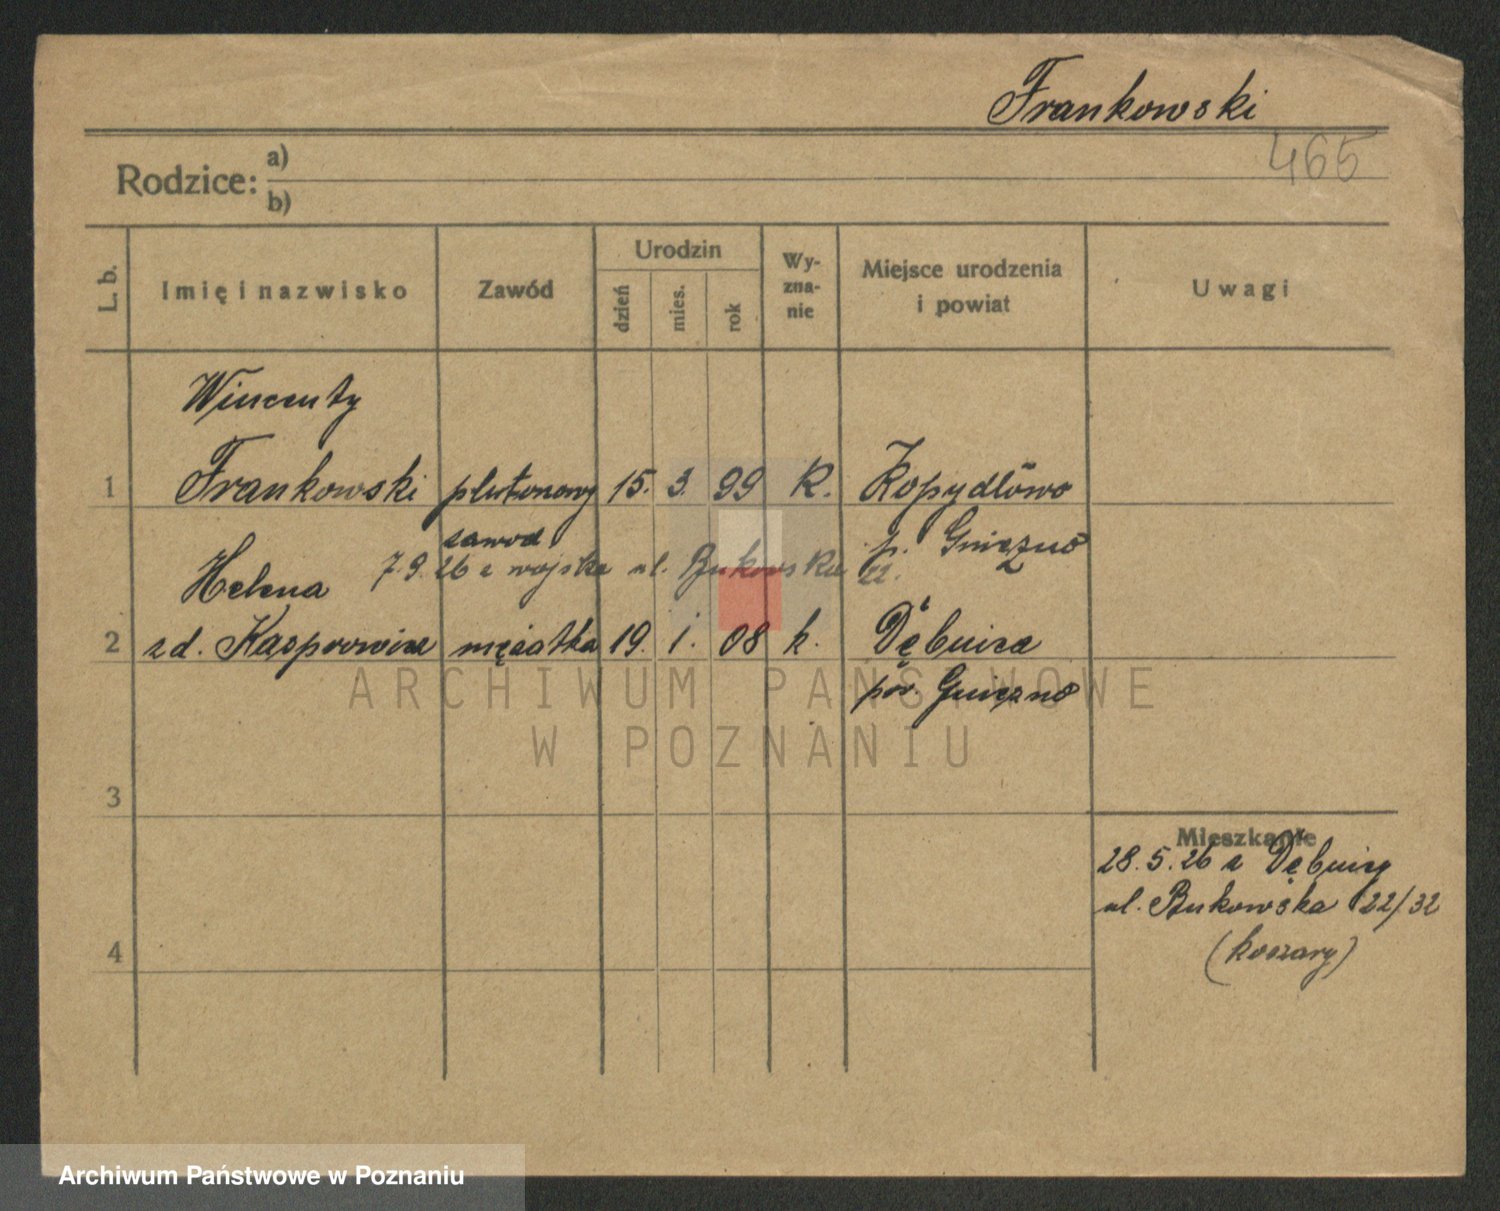 Frankowski
465
Rodzice: a)
b)
L. b.
Imię i nazwisko
Zawód
Urodzin
dzień
mies.
rok
Wy-
zna-
nie
Miejsce urodzenia
i powiat
Uwagi
Wincenty
1 Frankowski plutonowy 15. 3. 99 K. Kopydłowo
zawod p. Gniezno
7.9.26 z wojska ul. Bukowska 22.
Helena
2 zd. Kasprowicz mężatka 19. 1. 08 k. Dębnica
pow. Gniezno
ARCHIWUM PAŃSTWOWE
W POZNANIU
3
Mieszkanie
28.5.26 z Dębnicy
ul. Bukowska 22/32
4
(koszary)
Archiwum Państwowe w Poznaniu